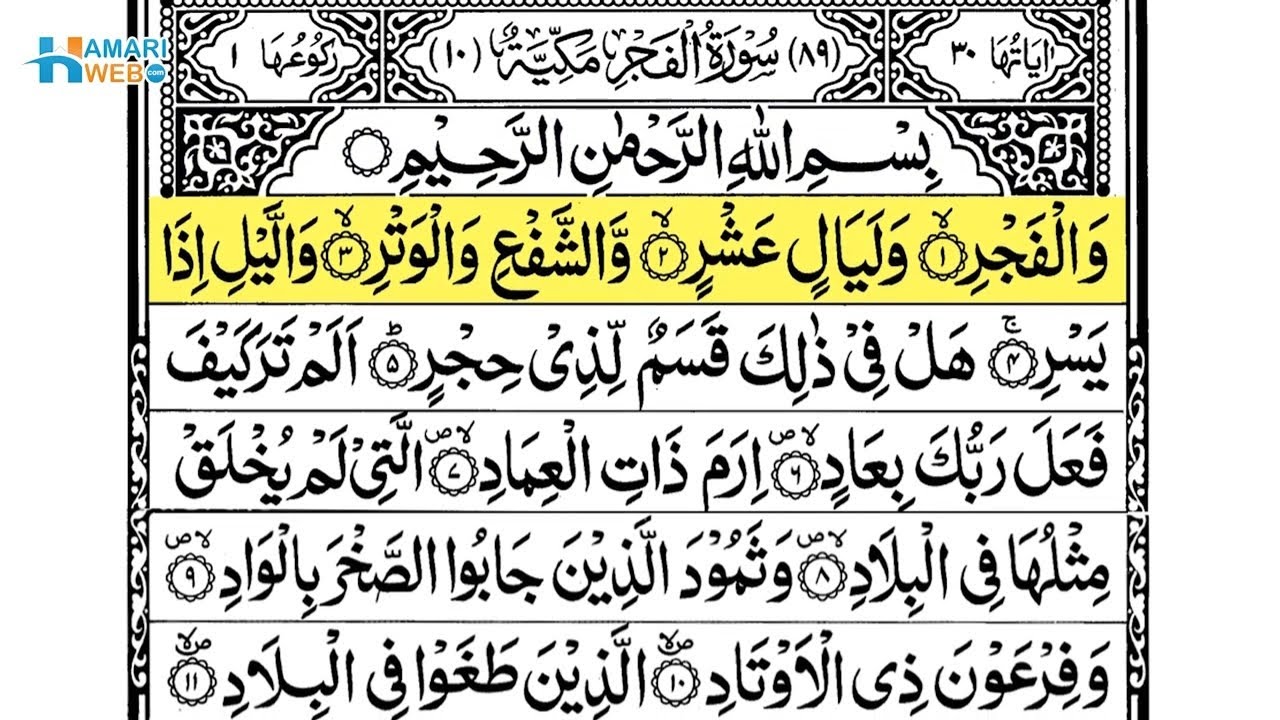 HAMARI
WEB.com
اٰيَاتُهَا ٣٠
(٨٩) سُوْرَةُ الْفَجْرِ مَكِّيَّةٌ (١٠)
رُكُوْعُهَا ١
بِسْمِ اللّٰهِ الرَّحْمٰنِ الرَّحِيْمِ ○
وَالْفَجْرِ ۙ﴿١﴾ وَلَيَالٍ عَشْرٍ ۙ﴿٢﴾ وَّالشَّفْعِ وَالْوَتْرِ ۙ﴿٣﴾ وَالَّيْلِ اِذَا
يَسْرِ ۚ﴿٤﴾ هَلْ فِيْ ذٰلِكَ قَسَمٌ لِّذِيْ حِجْرٍ ؕ﴿٥﴾ اَلَمْ تَرَ كَيْفَ
فَعَلَ رَبُّكَ بِعَادٍ ۪ۙ﴿٦﴾ اِرَمَ ذَاتِ الْعِمَادِ ۪ۙ﴿٧﴾ الَّتِيْ لَمْ يُخْلَقْ
مِثْلُهَا فِي الْبِلَادِ ۪ۙ﴿٨﴾ وَثَمُوْدَ الَّذِيْنَ جَابُوا الصَّخْرَ بِالْوَادِ ۪ۙ﴿٩﴾
وَفِرْعَوْنَ ذِي الْاَوْتَادِ ۪ۙ﴿١٠﴾ الَّذِيْنَ طَغَوْا فِي الْبِلَادِ ۪ۙ﴿١١﴾